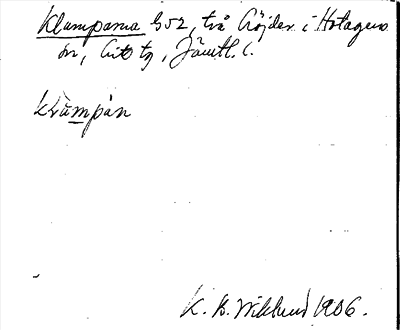 Klumparna 952, två höjder i Hotagens
sn, Lits tg, Jämtl. l.
klùmpàn
K. B. Wiklund 1906.